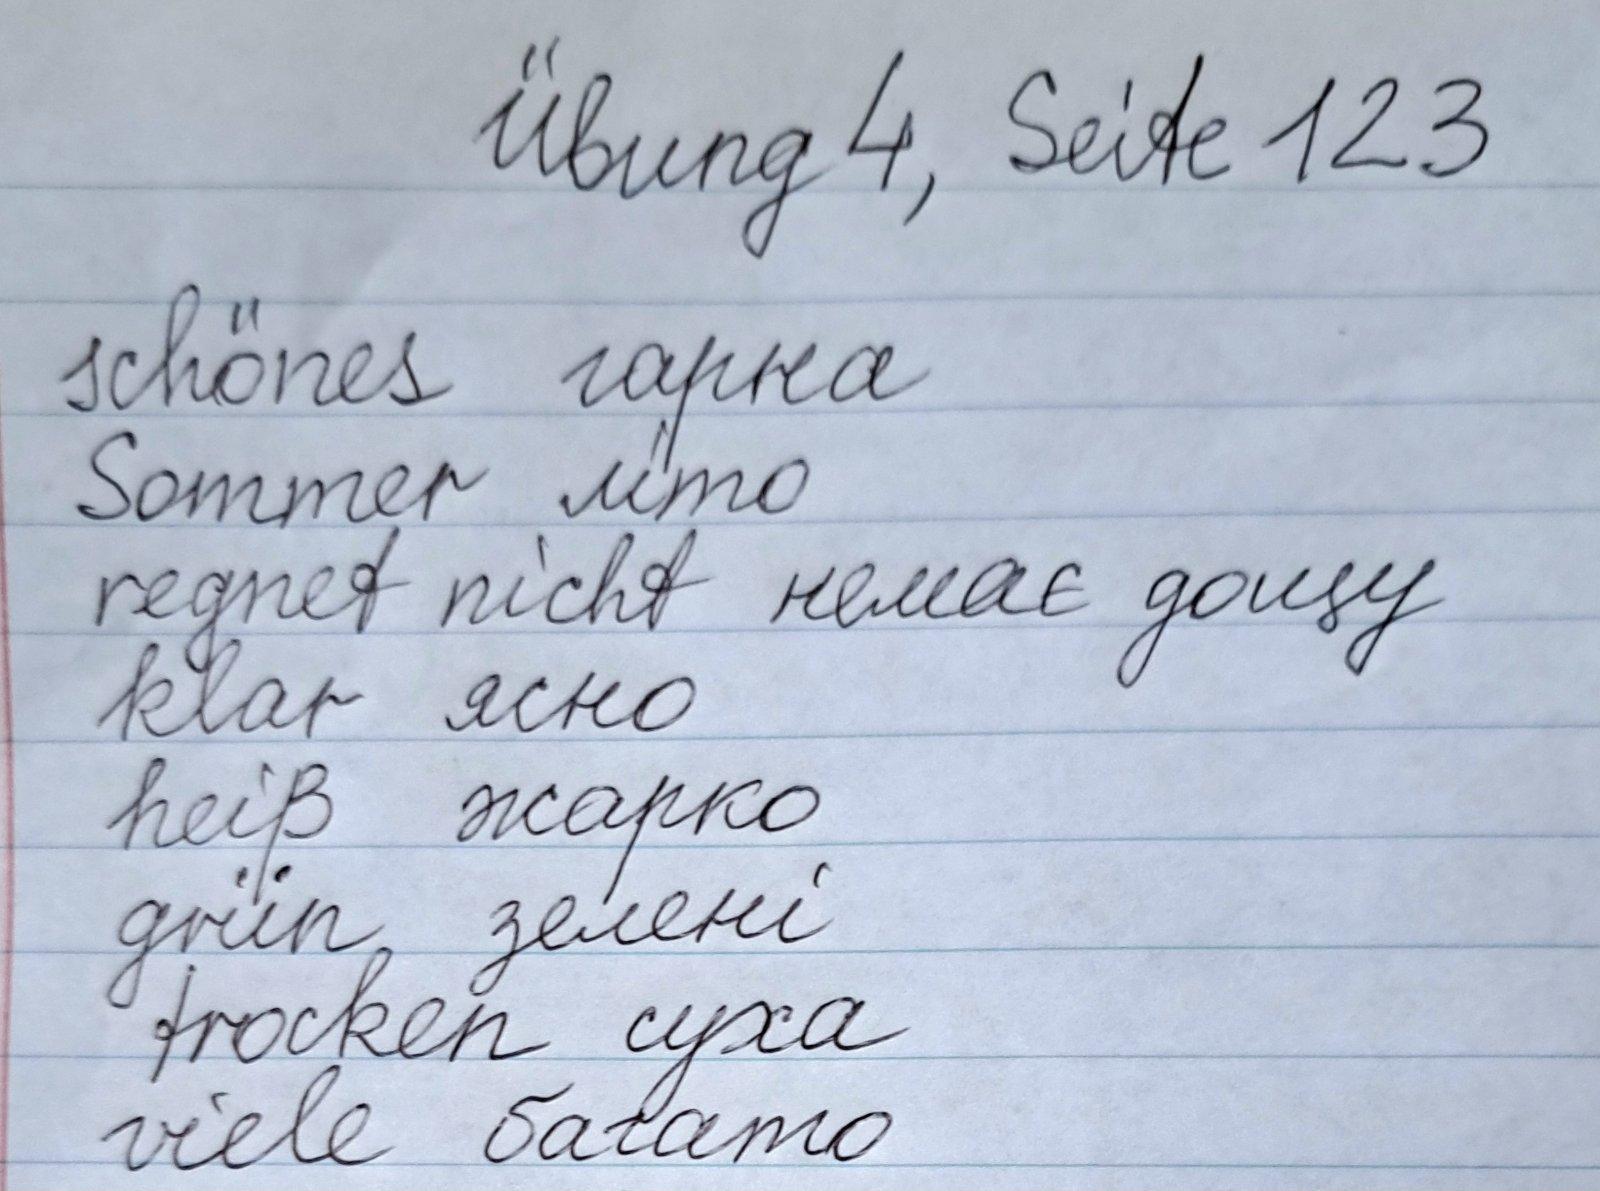 Übung 4, Seite 123
schönes гарна
Sommer літо
regnet nicht немає дощу
klar ясно
heiß жарко
grün, зелені
trocken суха
viele багато